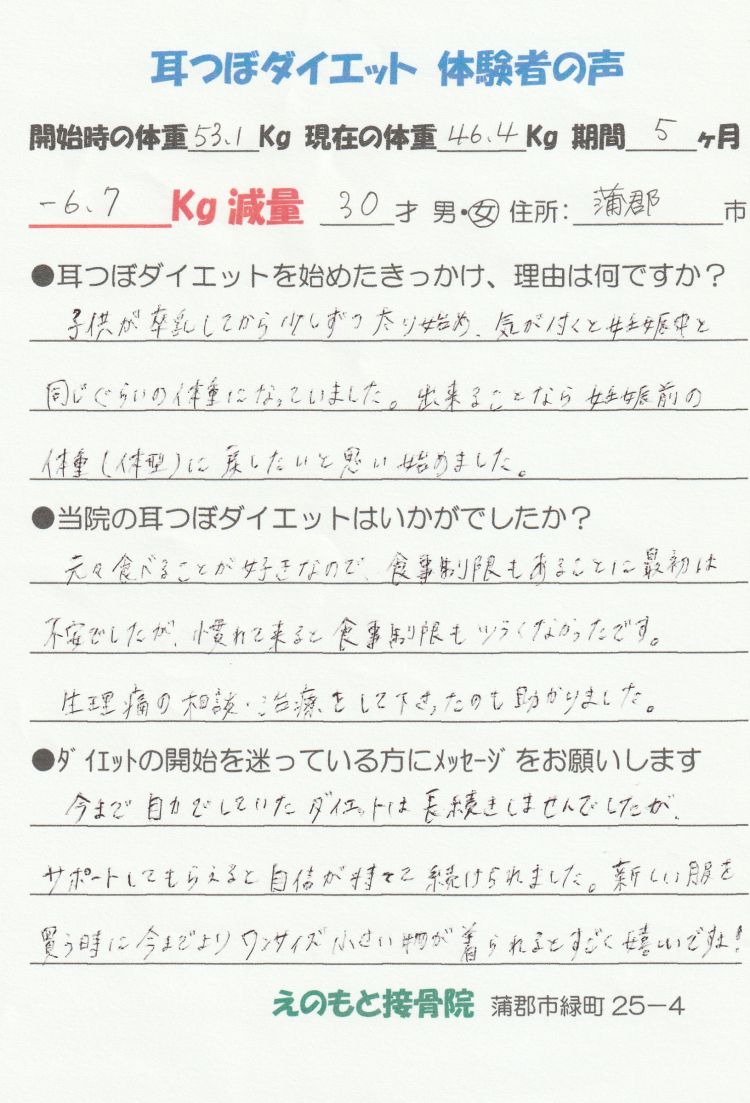 耳つぼダイエット 体験者の声
開始時の体重 53.1 Kg 現在の体重 46.4 Kg 期間 5 ヶ月
-6.7 Kg 減量 30 才 男・女 住所: 蒲郡 市
●耳つぼダイエットを始めたきっかけ、理由は何ですか?
子供が卒乳してから少しずつ太り始め、気が付くと妊娠中と
同じぐらいの体重になっていました。出来ることなら妊娠前の
体重(体型)に戻したいと思い始めました。
●当院の耳つぼダイエットはいかがでしたか?
元々食べることが好きなので、食事制限もあることに最初は
不安でしたが、慣れて来ると食事制限もツラくなかったです。
生理痛の相談・治療をして下さったのも助かりました。
●ダイエットの開始を迷っている方にメッセージをお願いします
今まで自力でしていたダイエットは長続きしませんでしたが、
サポートしてもらえると自信が持てて続けられました。新しい服を
買う時に今までよりワンサイズ小さい物が着られるとすごく嬉しいですよ!
えのもと接骨院 蒲郡市緑町25-4